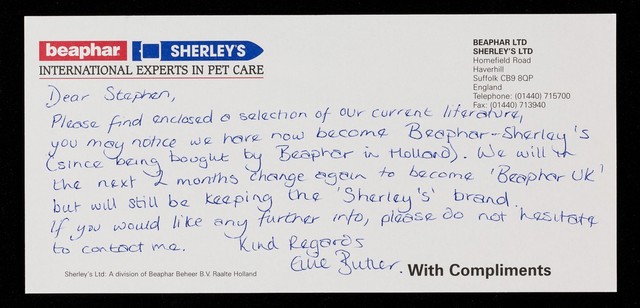 beaphar SHERLEY'S
INTERNATIONAL EXPERTS IN PET CARE
BEAPHAR LTD
SHERLEY'S LTD
Homefield Road
Haverhill
Suffolk CB9 8QP
England
Telephone: (01440) 715700
Fax: (01440) 713940
Dear Stephen,
Please find enclosed a selection of our current literature,
you may notice we have now become Beaphar-Sherley's
(since being bought by Beaphar in Holland). We will in
the next 2 months change again to become 'Beaphar UK'
but will still be keeping the 'Sherley's' brand.
If you would like any further info, please do not hesitate
to contact me. Kind Regards
Ellie Butler.
With Compliments
Sherley's Ltd: A division of Beaphar Beheer B.V. Raalte Holland